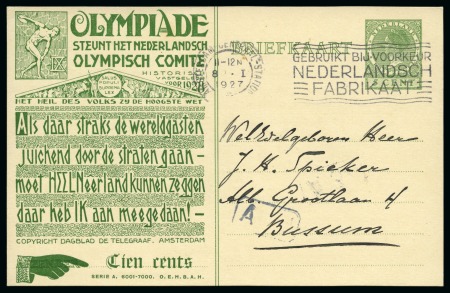 OLYMPIADE
STEUNT HET NEDERLANDSCH
OLYMPISCH COMITÉ
IX
HISTORISCH
VASTGELEGD
VOOR 1928
SALUS
POPULI
SUPREMA
LEX
HET HEIL DES VOLKS ZY DE HOOGSTE WET
Als daar straks de wereldgasten
juichend door de straten gaan –
moet HEEL Neerland kunnen zeggen
daar heb IK aan meegedaan! –
COPYRIGHT DAGBLAD DE TELEGRAAF, AMSTERDAM
Tien cents
SERIE A. 6001-7000. O.E.H.B.A.H.
BRIEFKAART
11-12N
8 I
1927
GEBRUIKT BIJ VOORKEUR
NEDERLANDSCH
FABRIKAAT
WelEdelgeboren Heer
J. H. Spieker
Alb. Grootlaan 4
Bussum
A